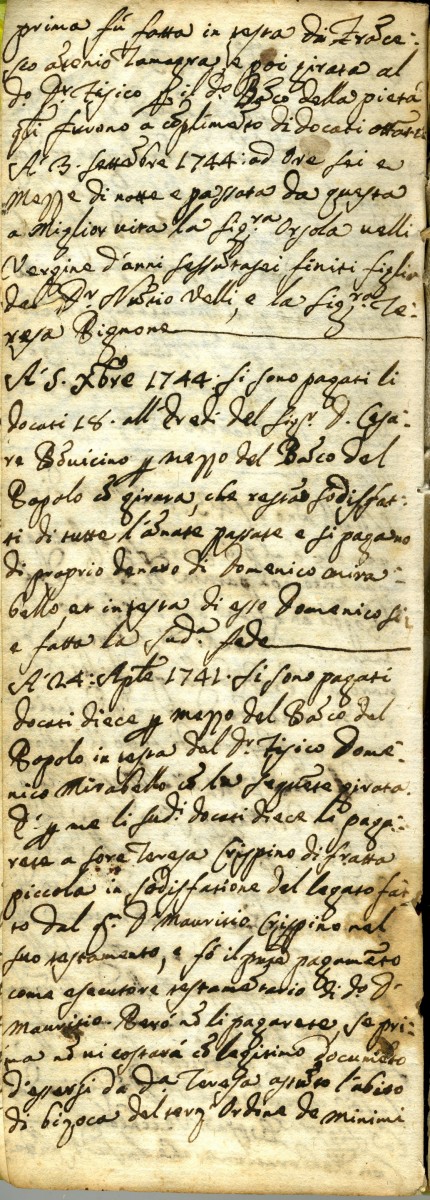 prima fù fatta in testa di France:
sco Antonio Tamagra, e poi girata al
do: Dr. Fisico p il do: Banco della pietà
q.li furono a cõplimẽto di docati ottãta
A' 3. Settẽbre 1744: ad ore sei e
Mezze di notte è passata da questa
a Miglior vita la Sig:ra Orsola velli
Vergine d'anni sessãtasei finiti figlia
del Dr. Nũtio velli, e la Sig:ra Te:
resa Bignone
A' 5. Xbre 1744: si sono pagati li
docati 18. all'Eredi del Sig.r D. Cesa:
re Bõvicino p mezzo del Bãco del
Popolo cõ girata, che restão sodisfat:
ti di tutte l'ãnate passate e si pagano
di proprio denaro di Domenico Mira:
bello, et in testa di esso Domenico si
e fatta la sud.a fede
A' 24: Aple 1741. si sono pagati
docati diece p mezzo del Bãco del
Popolo in testa del Dr. Fisico Dome:
nico Mirabello cõ la seguẽte girata.
E p me li sud.i docati diece li paga:
rete a Sore Teresa Crispino di fratta
piccola in sodisfatione del legato fat:
to dal q.m Dr Mauritio Crispino nel
suo testamento, e fò il pñte pagamẽto
come esecutore testamẽtario di do Dr
Mauritio. Però nõ li pagarete, se pri:
ma nõ vi costarà cõ legitimo documẽto
d'essersi da da Teresa assũto l'abito
di bizoca del terz' Ordine de Minimi